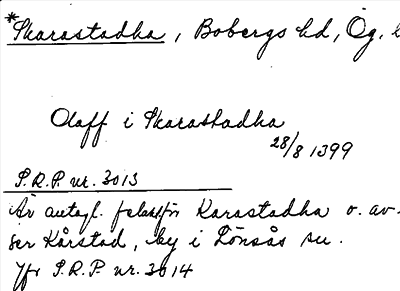 *Skarastadha, Bobergs hd, Ög. l
Olaff i Skarastadha
28/8 1399
S.R.P. nr. 3013
Är antagl. felskr. för Karastadha o. av-
ser Kårstad, by i Lönsås sn.
Jfr S.R.P. nr. 3014